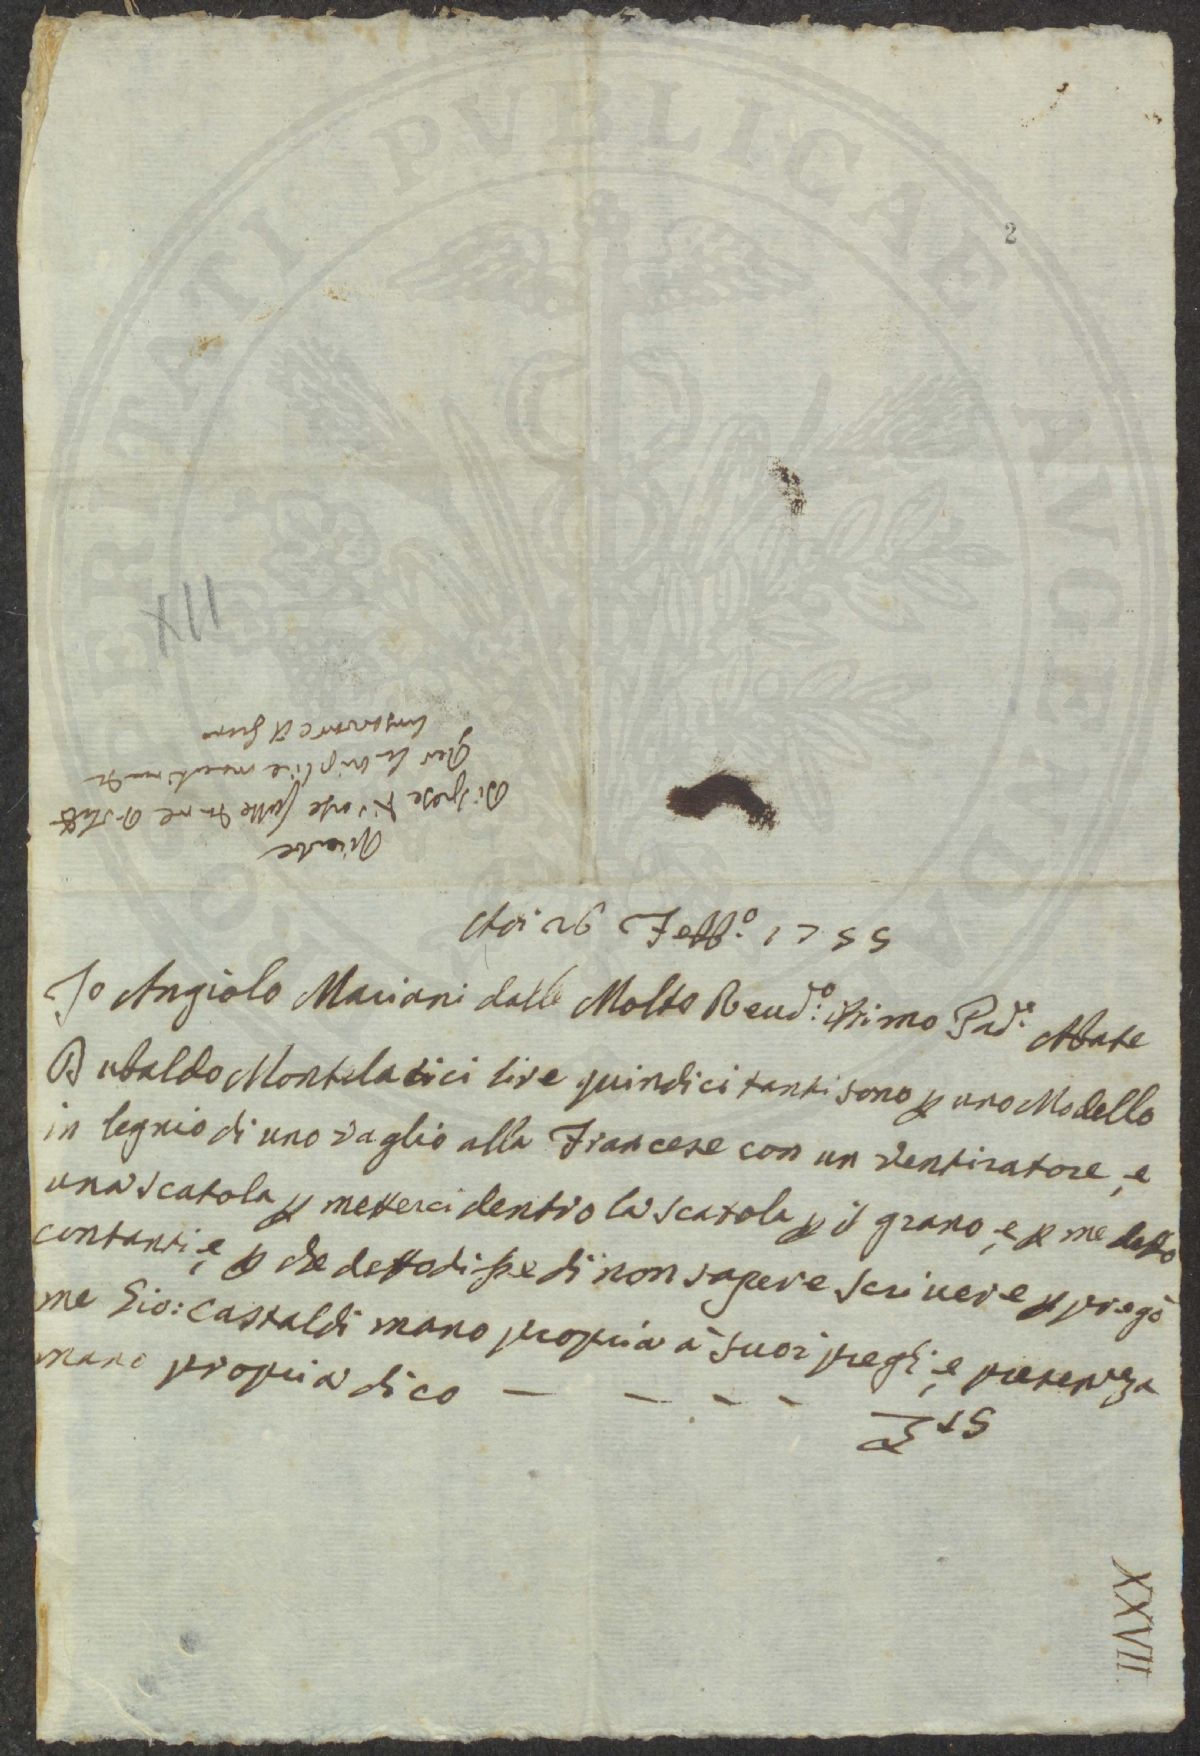 PROSPERITATI PVBLICAE AVGENDAE
2
XII
Ricevte
Di spese
Per
Adi 26 Febb.º 1755
Io Angiolo Mariani dalle Molto Reud:º issimo Pad.e Abate
D ubaldo Montelatici lire quindici tanti sono p uno Modello
in legnio di uno vaglio alla Francese con un ventiratore, e
una scatola p metterci dentro la scatola p il grano, e, p me detto
contanti, e, p che detto disse di non sapere scrivere p pregò
me Gio: Castaldi mano propria à suoi pregli, e presenza
mano propria dico — — — —
15
XXVII